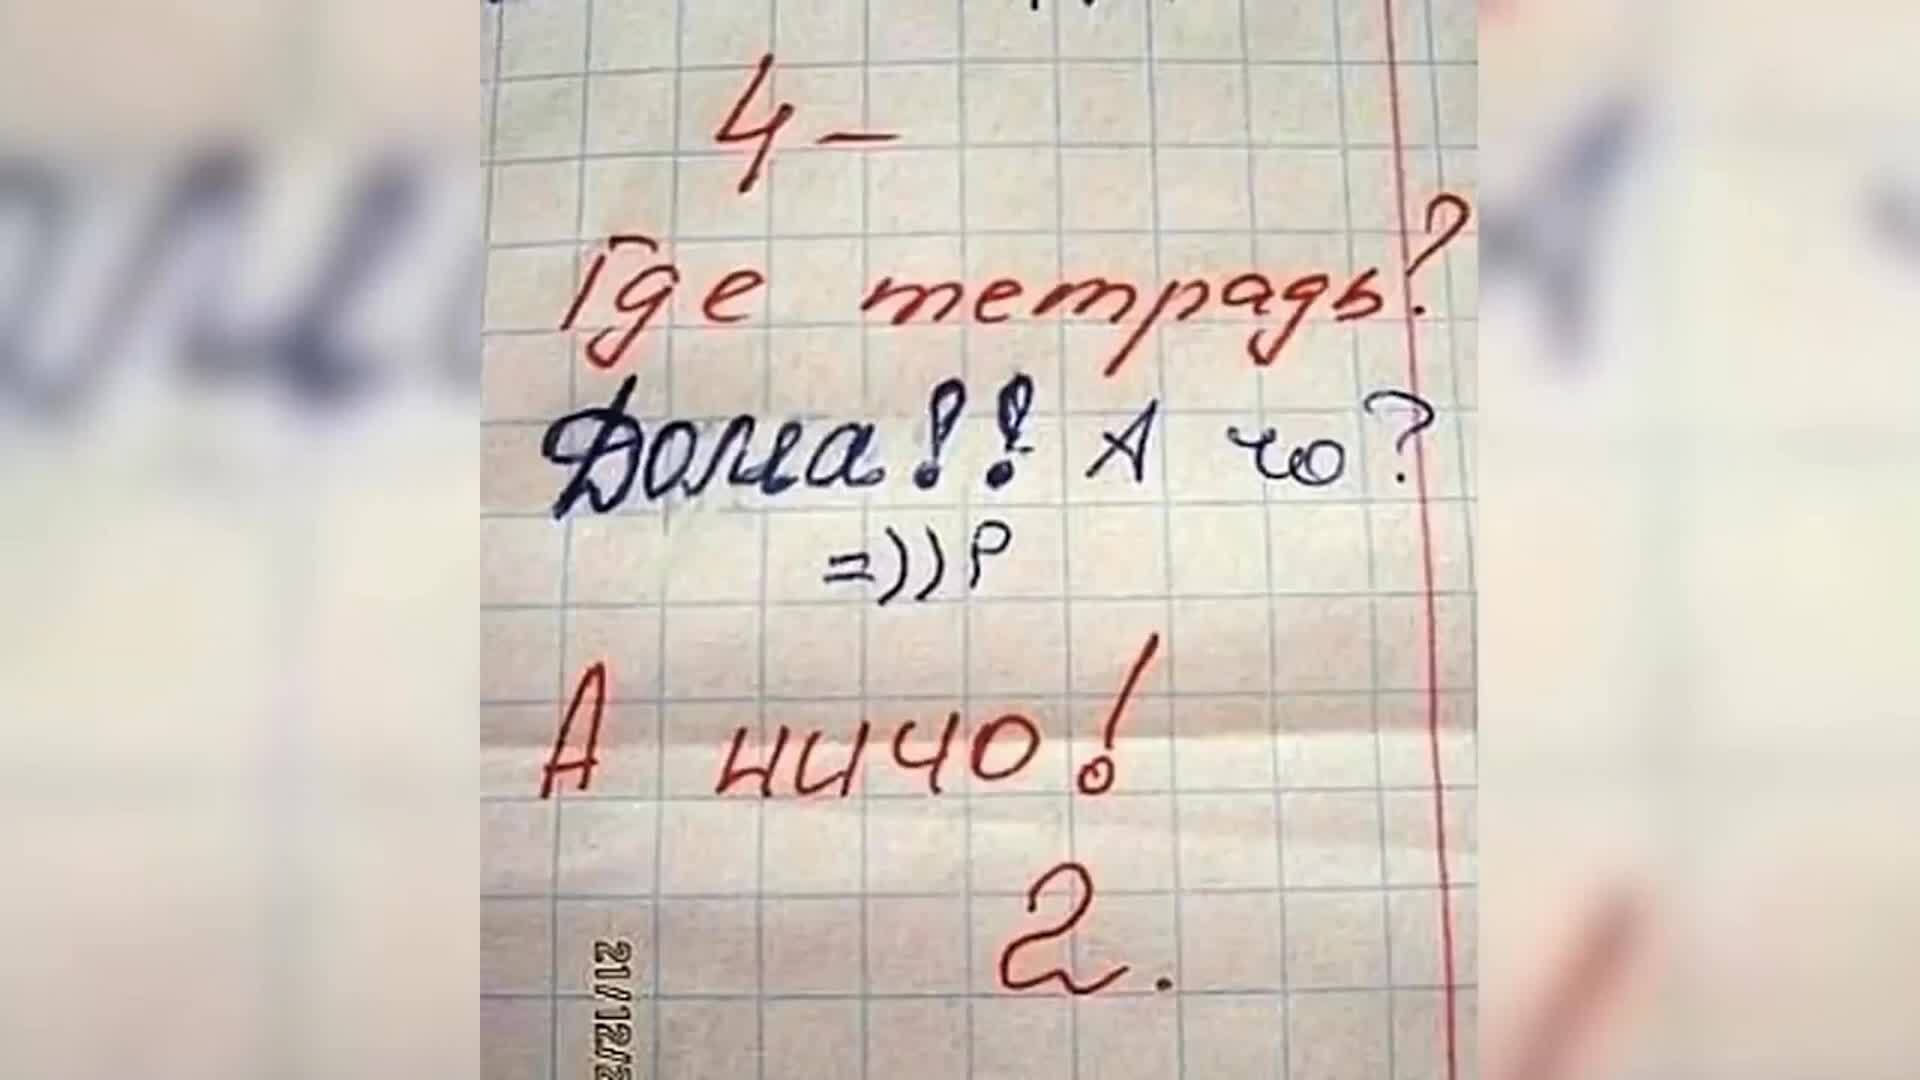 4-
Где тетрадь?
Дома!! А чо?
=))P
А ничо!
2.
21/12/2